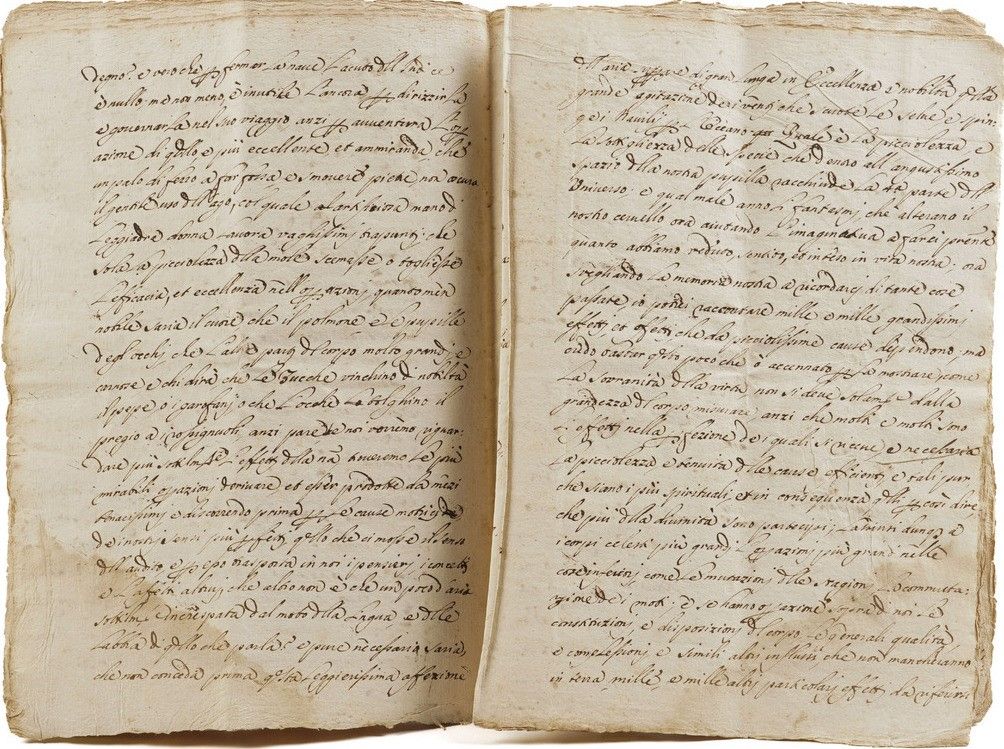 degno? e vero che per fermar la nave
è nullo me non meno, è inutile l'ancora per dirizzarla
e governarla nel suo viaggio anzi per avventura l'oper
azione di q.llo e più eccellente, et ammiranda che
un palo di ferro a por fossa e smover pietre non oscura
il gentile uso dell'ago, col quale mano di
leggiadre donna lavora vaghissimi trapunti; che
sola la picciolezza della mole scemasse o togliesse
l'eficacia, et eccellenza nell'operazioni quanto men
nobile saria il cuore che il polmone e le pupille
degl'occhi che l'altre parti del corpo molto grandi, e
carnose e chi dirà che le zucche vinchino di nobiltà
il pepe o i garofani, o che l'oche tolghino il
pregio a rossignuoli, anzi pare se noi vorremo riguar
dare più sottilm.te l'effetti della na troveremo le più
mirabili operazioni derivare et esser prodotte da mezi
tenuissimi e discorendo prima per le cause
de i nostri sensi più perfetti q.llo che ci move il senso
dell'audito e per esso trasporta in noi i pensieri, i concetti
e l'afetti altrui che altro non è che un poco d'aria
sottilm.te increspata dal moto della lingua e delle
labra di q.llo che parla? e pure necessario saria,
che non conceda prima q.sta leggierissima afferione
Maria superare di gran lunga in eccellenza e nobiltà q.lla
grande agitazione de i venti che scuote le selve e spin
ge i navilij per l'Oceano quale è la picciolezza e
la sottiglierza delle specie che denso all'angustissimo
spazio della nostra pupilla racchiude la 4.a parte dell'
Universo: e qual male anno i fantasmi che alterano il
nostro cervello ora aiutando l'imaginativa a farci presente
quanto abbiamo veduto sentito, ed inteso in vita nostra; ora
svegliando la memoria nostra a ricordarci di tante cose
passate, io potrei raccontare mille e mille grandissimi
effetti et ofetti che da picciolissime cause dipendono: ma
credo bastar q.sto poco che ò accennato per mostrare, come
la sovranità della virtù non si deve solam.te dalla
grandezza del corpo misurare, anzi che molti e molti sono
l'effetti nella perfezione de i quali si ricerca e necessaria
la picciolezza e tenuità delle cause efficienti e tali pur
che siano i più spirituali, et in consequenza q.lli per così dire
che più della divinità sono partecipi;
i corpi celesti più grandi l'operazioni più grandi nelle
cose inferiori come le mutazioni delle stagioni le commuta-
zione de i moti: e se hanno operazione sopra di noi le
constituzioni, e disposizioni del corpo le generali qualità
e complessioni e simili altri influssi che non mancheranno
in terra mille, e mille altri particolari effetti da riferirsi